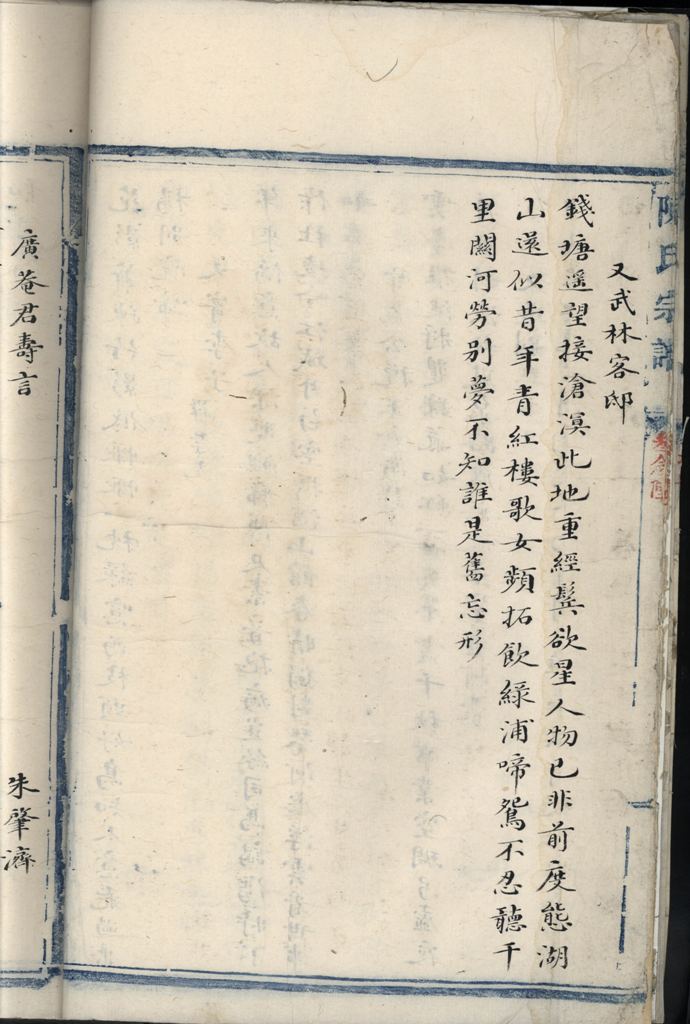 陳氏宗譜
又武林客邸
錢塘遥望接滄溟此地重經鬂欲星人物已非前度態湖
山還似昔年青紅樓歌女頻拓飲綠浦啼鴛不忍聽千
里關河勞別夢不知誰是舊忘形
廣菴君壽言
朱肇濟